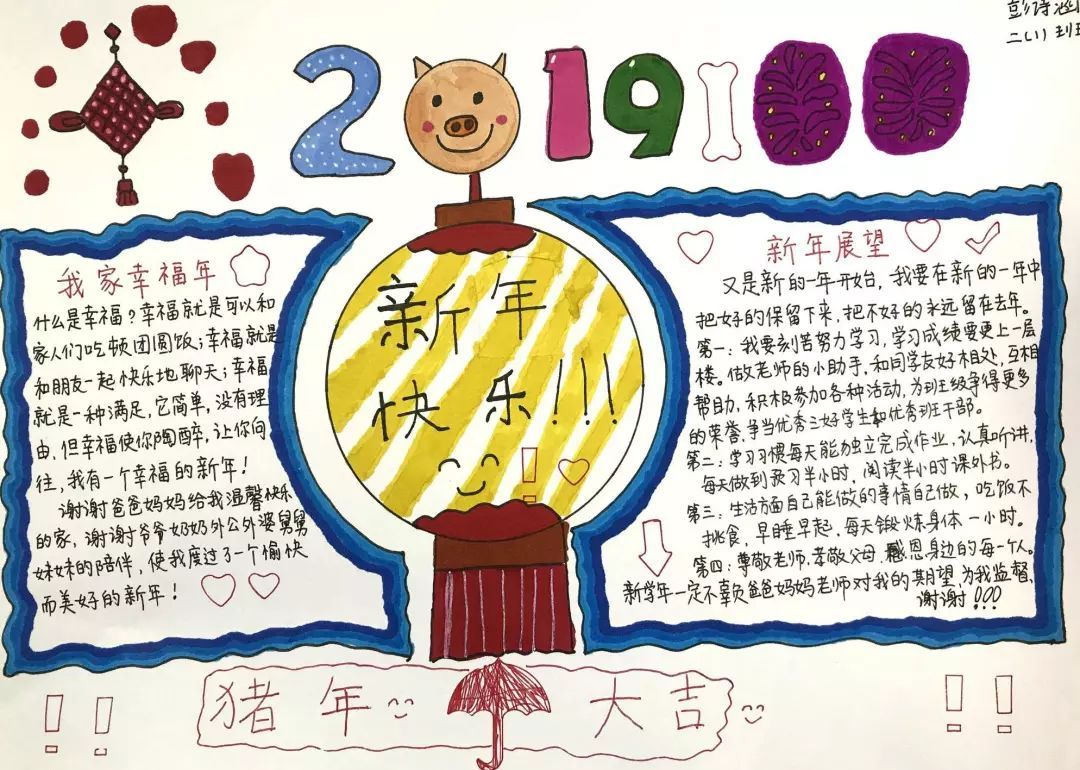 彭诗涵
二(1)班
2019
我家幸福年
什么是幸福?幸福就是可以和
家人们吃顿团圆饭;幸福就是
和朋友一起快乐地聊天;幸福
就是一种满足,它简单,没有理
由,但幸福使你陶醉,让你向
往,我有一个幸福的新年!
谢谢爸爸妈妈给我温馨快乐
的家,谢谢爷爷奶奶外公外婆舅舅
妹妹的陪伴,使我度过了一个愉快
而美好的新年!
新年
快乐!!!
新年展望
又是新的一年开始,我要在新的一年中
把好的保留下来,把不好的永远留在去年。
第一:我要刻苦努力学习,学习成绩要更上一层
楼。做老师的小助手,和同学友好相处,互相
帮助,积极参加各种活动,为班级争得更多
的荣誉,争当优秀三好学生和优秀班干部。
第二:学习习惯每天能独立完成作业,认真听讲,
每天做到预习半小时,阅读半小时课外书。
第三:生活方面自己能做的事情自己做,吃饭不
挑食,早睡早起,每天锻炼身体一小时。
第四:尊敬老师,孝敬父母,感恩身边的每一个人。
新学年一定不辜负爸爸妈妈老师对我的期望,为我监督,
谢谢!!!
猪年大吉